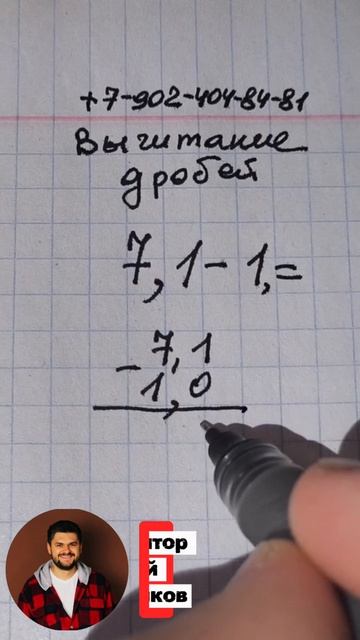 +7-902-404-84-81
Вычитание
дробей
7,1-1,=
- 7,1
1,0
тор
й
ков